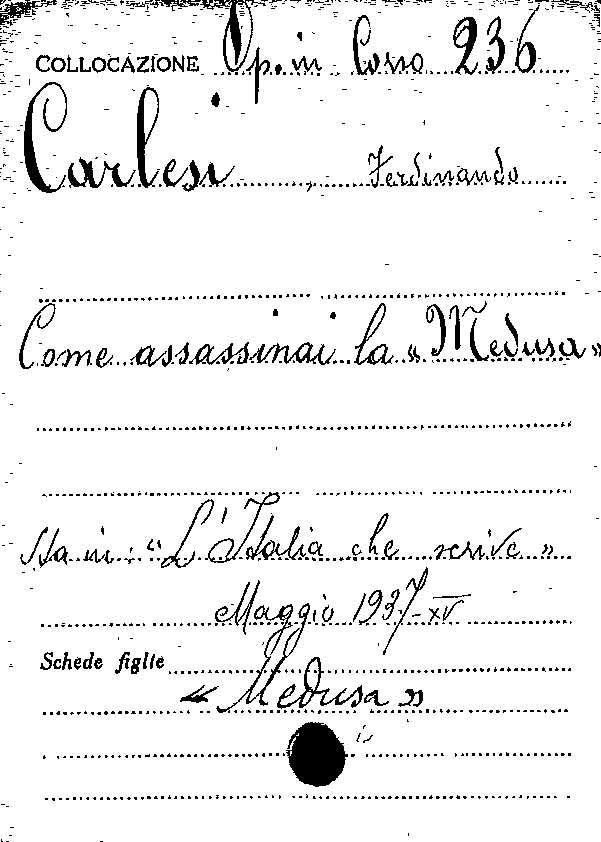 COLLOCAZIONE Op. in Corso 236
Carlesi, Ferdinando
Come assassinai la « Medusa »
Sta in: "L'Italia che scrive"
Maggio 1937-XV
Schede figlie
« Medusa »